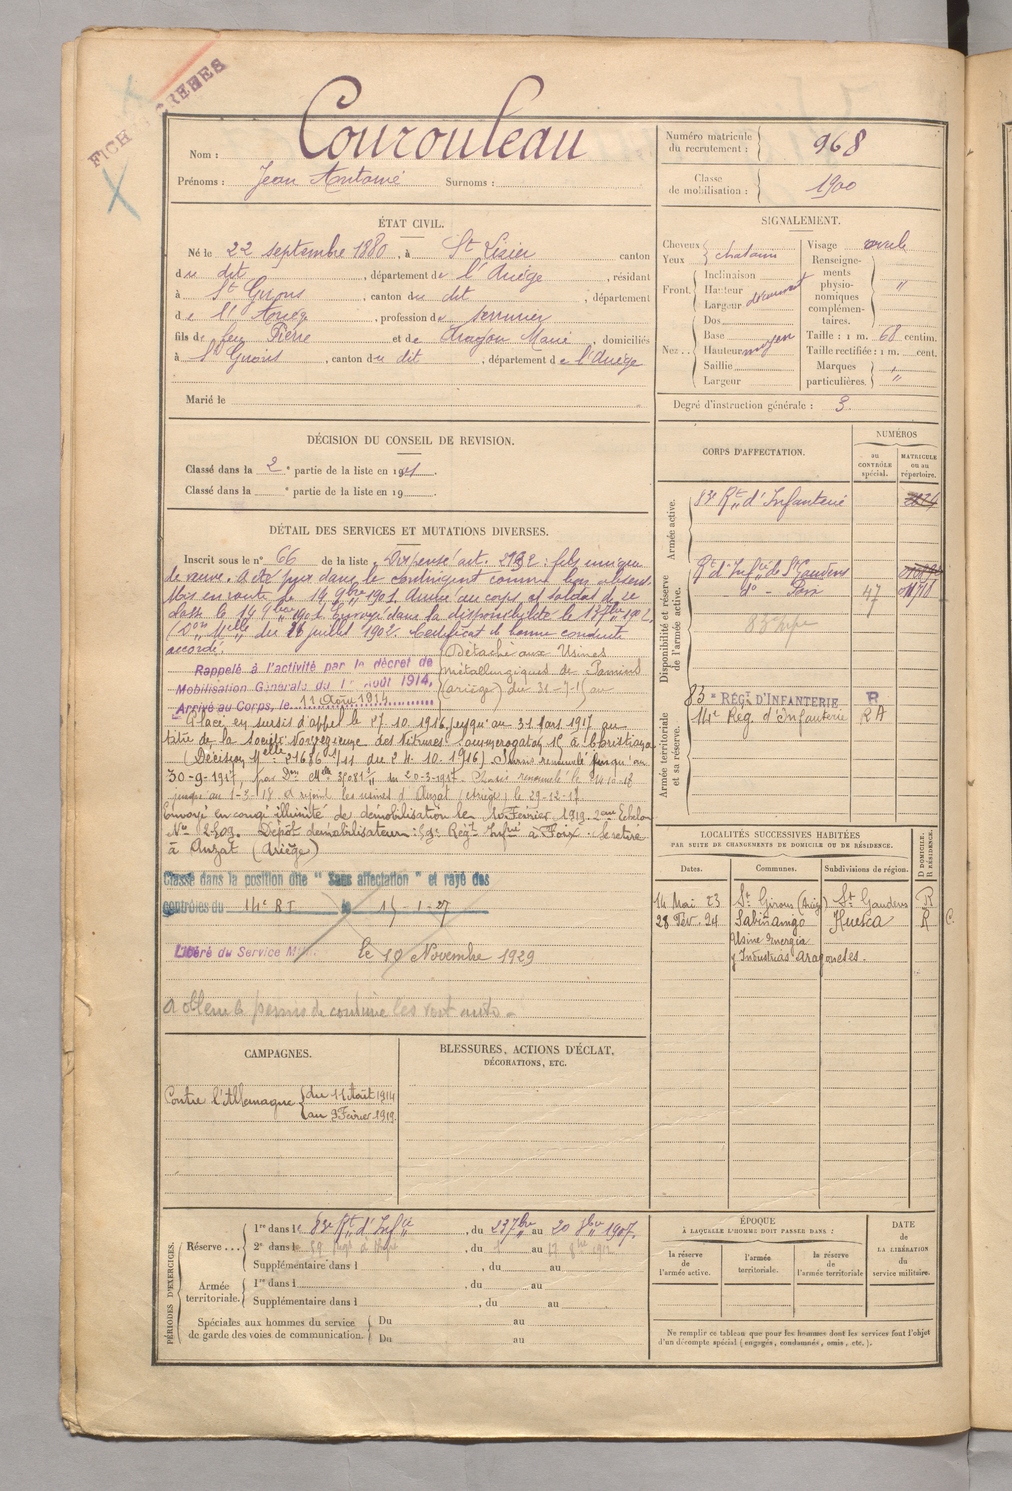 FICH CREEES
Nom : Courouleau
Prénoms : Jean Antoine Surnoms :
Numéro matricule du recrutement : 968
Classe de mobilisation : 1900
ÉTAT CIVIL.
Né le 22 septembre 1880, à St Lizier canton
du dit, département de l'Ariège, résidant
à St Girons, canton du dit, département
de l'Ariège, profession de serrurier
fils de feu Pierre et de Marie, domiciliés
à St Girons, canton du dit, département de l'Ariège
Marié le
SIGNALEMENT.
Cheveux
Yeux
chatain
Front.
Inclinaison
Hauteur
Largeur
découvert
Nez..
Dos
Base
Hauteur moyen
Saillie
Largeur
Visage ovale
Renseignements physionomiques complémentaires. "
Taille : 1 m. 68 centim.
Taille rectifiée : 1 m. cent.
Marques particulières. "
Degré d'instruction générale : 3.
DÉCISION DU CONSEIL DE REVISION.
Classé dans la 2e partie de la liste en 1901.
Classé dans la e partie de la liste en 19
CORPS D'AFFECTATION.
NUMÉROS
au CONTRÔLE spécial.
MATRICULE ou au répertoire.
Armée active.
83e Rt d'Infanterie
Disponibilité et réserve de l'armée active.
Rt d'Infie de St Gaudens
do - Foix 47
Armée territoriale et sa réserve.
83e RÉGt D'INFANTERIE R
14e Reg. d'Infanterie RA
DÉTAIL DES SERVICES ET MUTATIONS DIVERSES.
Inscrit sous le n° 66 de la liste. Dispensé art. fils unique
de veuve. A été pris dans le contingent comme bon absent.
Mis en route le 14 9bre 1901. Arrivé au corps et soldat de 2e
classe le 14 9bre 1901. Envoyé dans la disponibilité le 1902.
juillet 1902. Certificat de bonne conduite
accordé.
Rappelé à l'activité par le décret de
Mobilisation Générale du 1er Août 1914,
Arrivé au Corps, le 11 Août 1914
Détaché aux Usines
métallurgiques de Pamiers
(ariège) du au
Placé en sursis d'appel le 27.10.1916 jusqu'au 31 Mars 1917 au
titre de la Société Norvégienne des Nitrures à Christiania
(Décision Melle 10.1916) Sursis renouvelé jusqu'au
30-9-1917, par Don Melle du 20-3-1917. renouvelé le
jusqu'au 1-3-18. A rejoint les usines d'Auzat (Ariège) le 29-12-17
Envoyé en congé illimité de démobilisation le 10 Février 1919. 2eme Echelon
No 12509. Dépôt démobilisateur : Regt Infrie à Foix. Se retire
à Auzat (Ariège)
Classé dans la position dite "Sans affectation" et rayé des
contrôles du 14e RI le 15-1-27
Libéré du Service Mil. le 10 Novembre 1929
A obtenu le permis de conduire les voit auto.
LOCALITÉS SUCCESSIVES HABITÉES
PAR SUITE DE CHANGEMENTS DE DOMICILE OU DE RÉSIDENCE.
Dates. Communes. Subdivisions de région. D DOMICILE. R RÉSIDENCE.
14 Mai 23 St Girons (Ariège) St Gaudens R
28 Fév. 24 Sabiñanigo Huesca R C.
Usine Energia
y Industrias Aragonesas.
CAMPAGNES.
Contre l'Allemagne { du 11 Août 1914
au 9 Février 1919.
BLESSURES, ACTIONS D'ÉCLAT,
DÉCORATIONS, ETC.
PÉRIODES D'EXERCICES.
Réserve...
1re dans le 83e Rt d'Infie, du 23 7bre au 20 8bre 1907.
2e dans le, du 1 au 17 8bre
Supplémentaire dans l, du au
Armée territoriale.
1re dans l, du au
Supplémentaire dans l, du au
Spéciales aux hommes du service de garde des voies de communication.
Du au
Du au
ÉPOQUE
À LAQUELLE L'HOMME DOIT PASSER DANS :
la réserve de l'armée active.
l'armée territoriale.
la réserve de l'armée territoriale
DATE de LA LIBÉRATION du service militaire.
Ne remplir ce tableau que pour les hommes dont les services font l'objet
d'un décompte spécial (engagés, condamnés, omis, etc.).